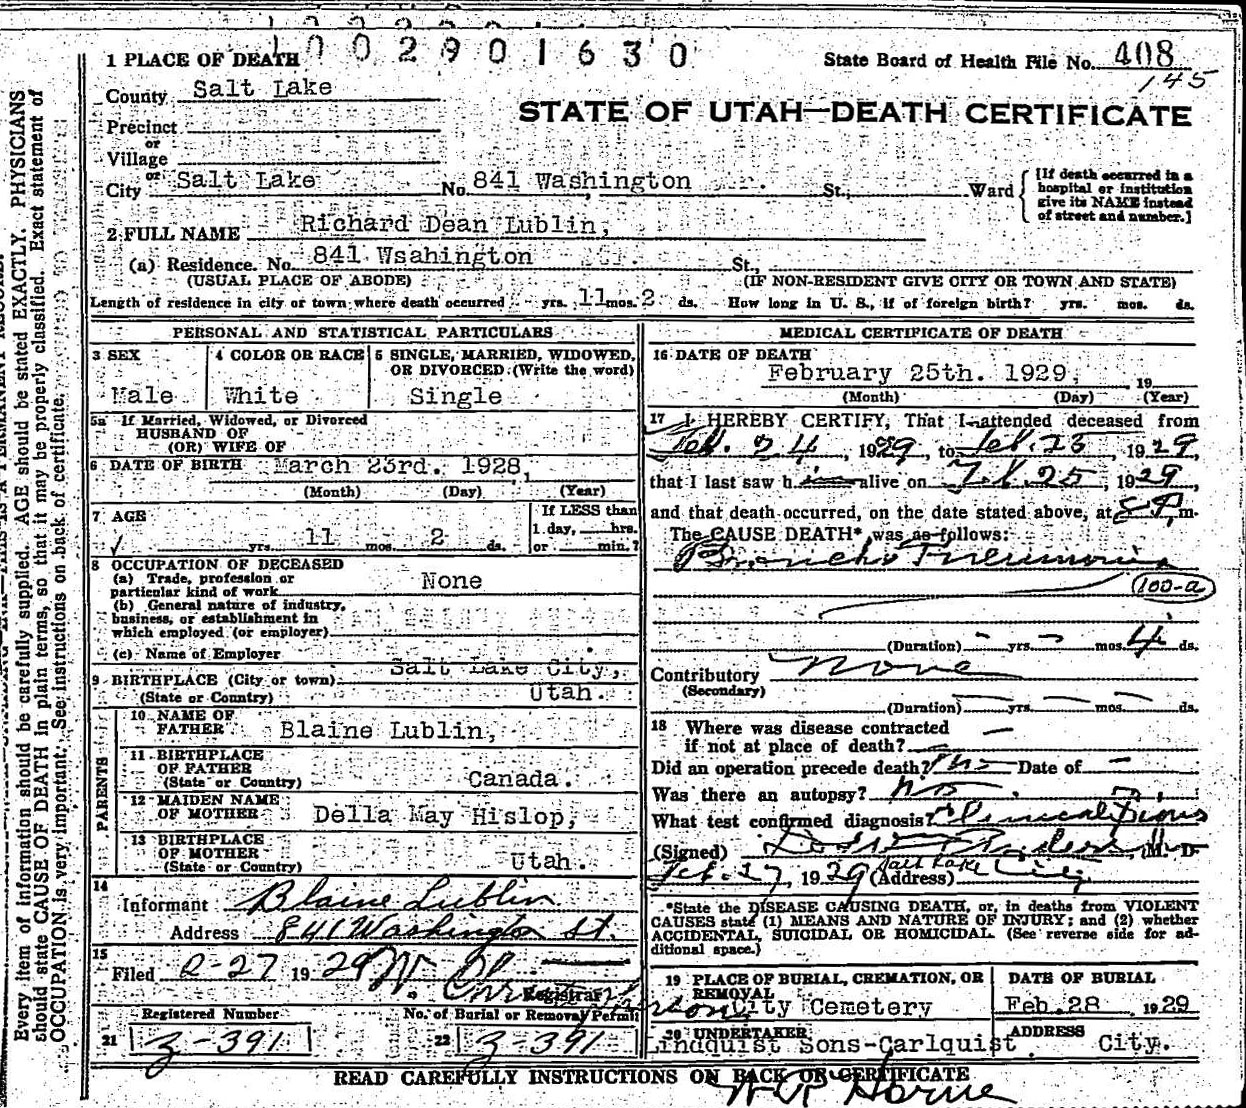 1 0 0 2 9 0 1 6 3 0
1 PLACE OF DEATH
State Board of Health File No. 408
145
County Salt Lake
STATE OF UTAH—DEATH CERTIFICATE
Precinct
or
Village
or
City Salt Lake No. 841 Washington St., Ward
[If death occurred in a
hospital or institution
give its NAME instead
of street and number.]
2 FULL NAME Richard Dean Lublin,
(a) Residence. No. 841 Wsahington St.,
(USUAL PLACE OF ABODE) (IF NON-RESIDENT GIVE CITY OR TOWN AND STATE)
Length of residence in city or town where death occurred yrs. 11 mos. 2 ds. How long in U. S., if of foreign birth? yrs. mos. ds.
PERSONAL AND STATISTICAL PARTICULARS
3 SEX
Male
4 COLOR OR RACE
White
5 SINGLE, MARRIED, WIDOWED,
OR DIVORCED (Write the word)
Single
5a If Married, Widowed, or Divorced
HUSBAND OF
(OR) WIFE OF
6 DATE OF BIRTH March 23rd. 1928,
(Month) (Day) (Year)
7 AGE
yrs. 11 mos. 2 ds.
If LESS than
1 day, hrs.
or min.?
8 OCCUPATION OF DECEASED
(a) Trade, profession or
particular kind of work None
(b) General nature of industry,
business, or establishment in
which employed (or employer)
(c) Name of Employer
9 BIRTHPLACE (City or town) Salt Lake City,
(State or Country) Utah.
PARENTS
10 NAME OF
FATHER Blaine Lublin,
11 BIRTHPLACE
OF FATHER
(State or Country) Canada.
12 MAIDEN NAME
OF MOTHER Della May Hislop,
13 BIRTHPLACE
OF MOTHER
(State or Country) Utah.
14
Informant Blaine Lublin
Address 841 Washington St.
15
Filed 2-27 1929
Registrar
Registered Number
21 3-391
No. of Burial or Removal Permit
22 3-391
MEDICAL CERTIFICATE OF DEATH
16 DATE OF DEATH
February 25th. 1929, 19
(Month) (Day) (Year)
17 I HEREBY CERTIFY, That I attended deceased from
Feb. 24, 1929, to Feb. 25, 1929,
that I last saw him alive on Feb. 25, 1929,
and that death occurred, on the date stated above, at 8 P. m.
The CAUSE DEATH* was as follows:
Broncho Pneumonia
100-a
(Duration) - yrs. - mos. 4 ds.
Contributory None
(Secondary)
(Duration) yrs. mos. ds.
18 Where was disease contracted
if not at place of death?
Did an operation precede death? No Date of -
Was there an autopsy? No
What test confirmed diagnosis? Clinical Signs
(Signed) M. D.
Feb. 27, 1929 (Address) Salt Lake City
*State the DISEASE CAUSING DEATH, or, in deaths from VIOLENT
CAUSES state (1) MEANS AND NATURE OF INJURY; and (2) whether
ACCIDENTAL, SUICIDAL OR HOMICIDAL. (See reverse side for ad-
ditional space.)
19 PLACE OF BURIAL, CREMATION, OR
REMOVAL
City Cemetery
DATE OF BURIAL
Feb. 28 1929
20 UNDERTAKER
Lindquist Sons-Carlquist
ADDRESS
City.
READ CAREFULLY INSTRUCTIONS ON BACK OF CERTIFICATE
Horne
Every item of information should be carefully supplied. AGE should be stated EXACTLY. PHYSICIANS
should state CAUSE OF DEATH in plain terms, so that it may be properly classified. Exact statement of
OCCUPATION is very important. See instructions on back of certificate.